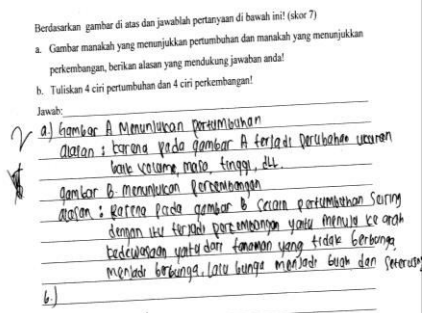 Berdasarkan gambar di atas dan jawablah pertanyaan di bawah ini! (skor 7)
a. Gambar manakah yang menunjukkan pertumbuhan dan manakah yang menunjukkan
perkembangan, berikan alasan yang mendukung jawaban anda!
b. Tuliskan 4 ciri pertumbuhan dan 4 ciri perkembangan!
Jawab:
a.) Gambar A Menunjukan pertumbuhan
alasan : karena pada gambar A terjadi perubahan ukuran
baik volume, masa, tinggi, dll.
gambar B menunjukan perkembangan
alasan : karena pada gambar B selain pertumbuhan seiring
dengan itu terjadi perkembangan yaitu menuju ke arah
kedewasaan yaitu dari tanaman yang tidak berbunga
menjadi berbunga. lalu bunga menjadi buah dan seterusny
b.)